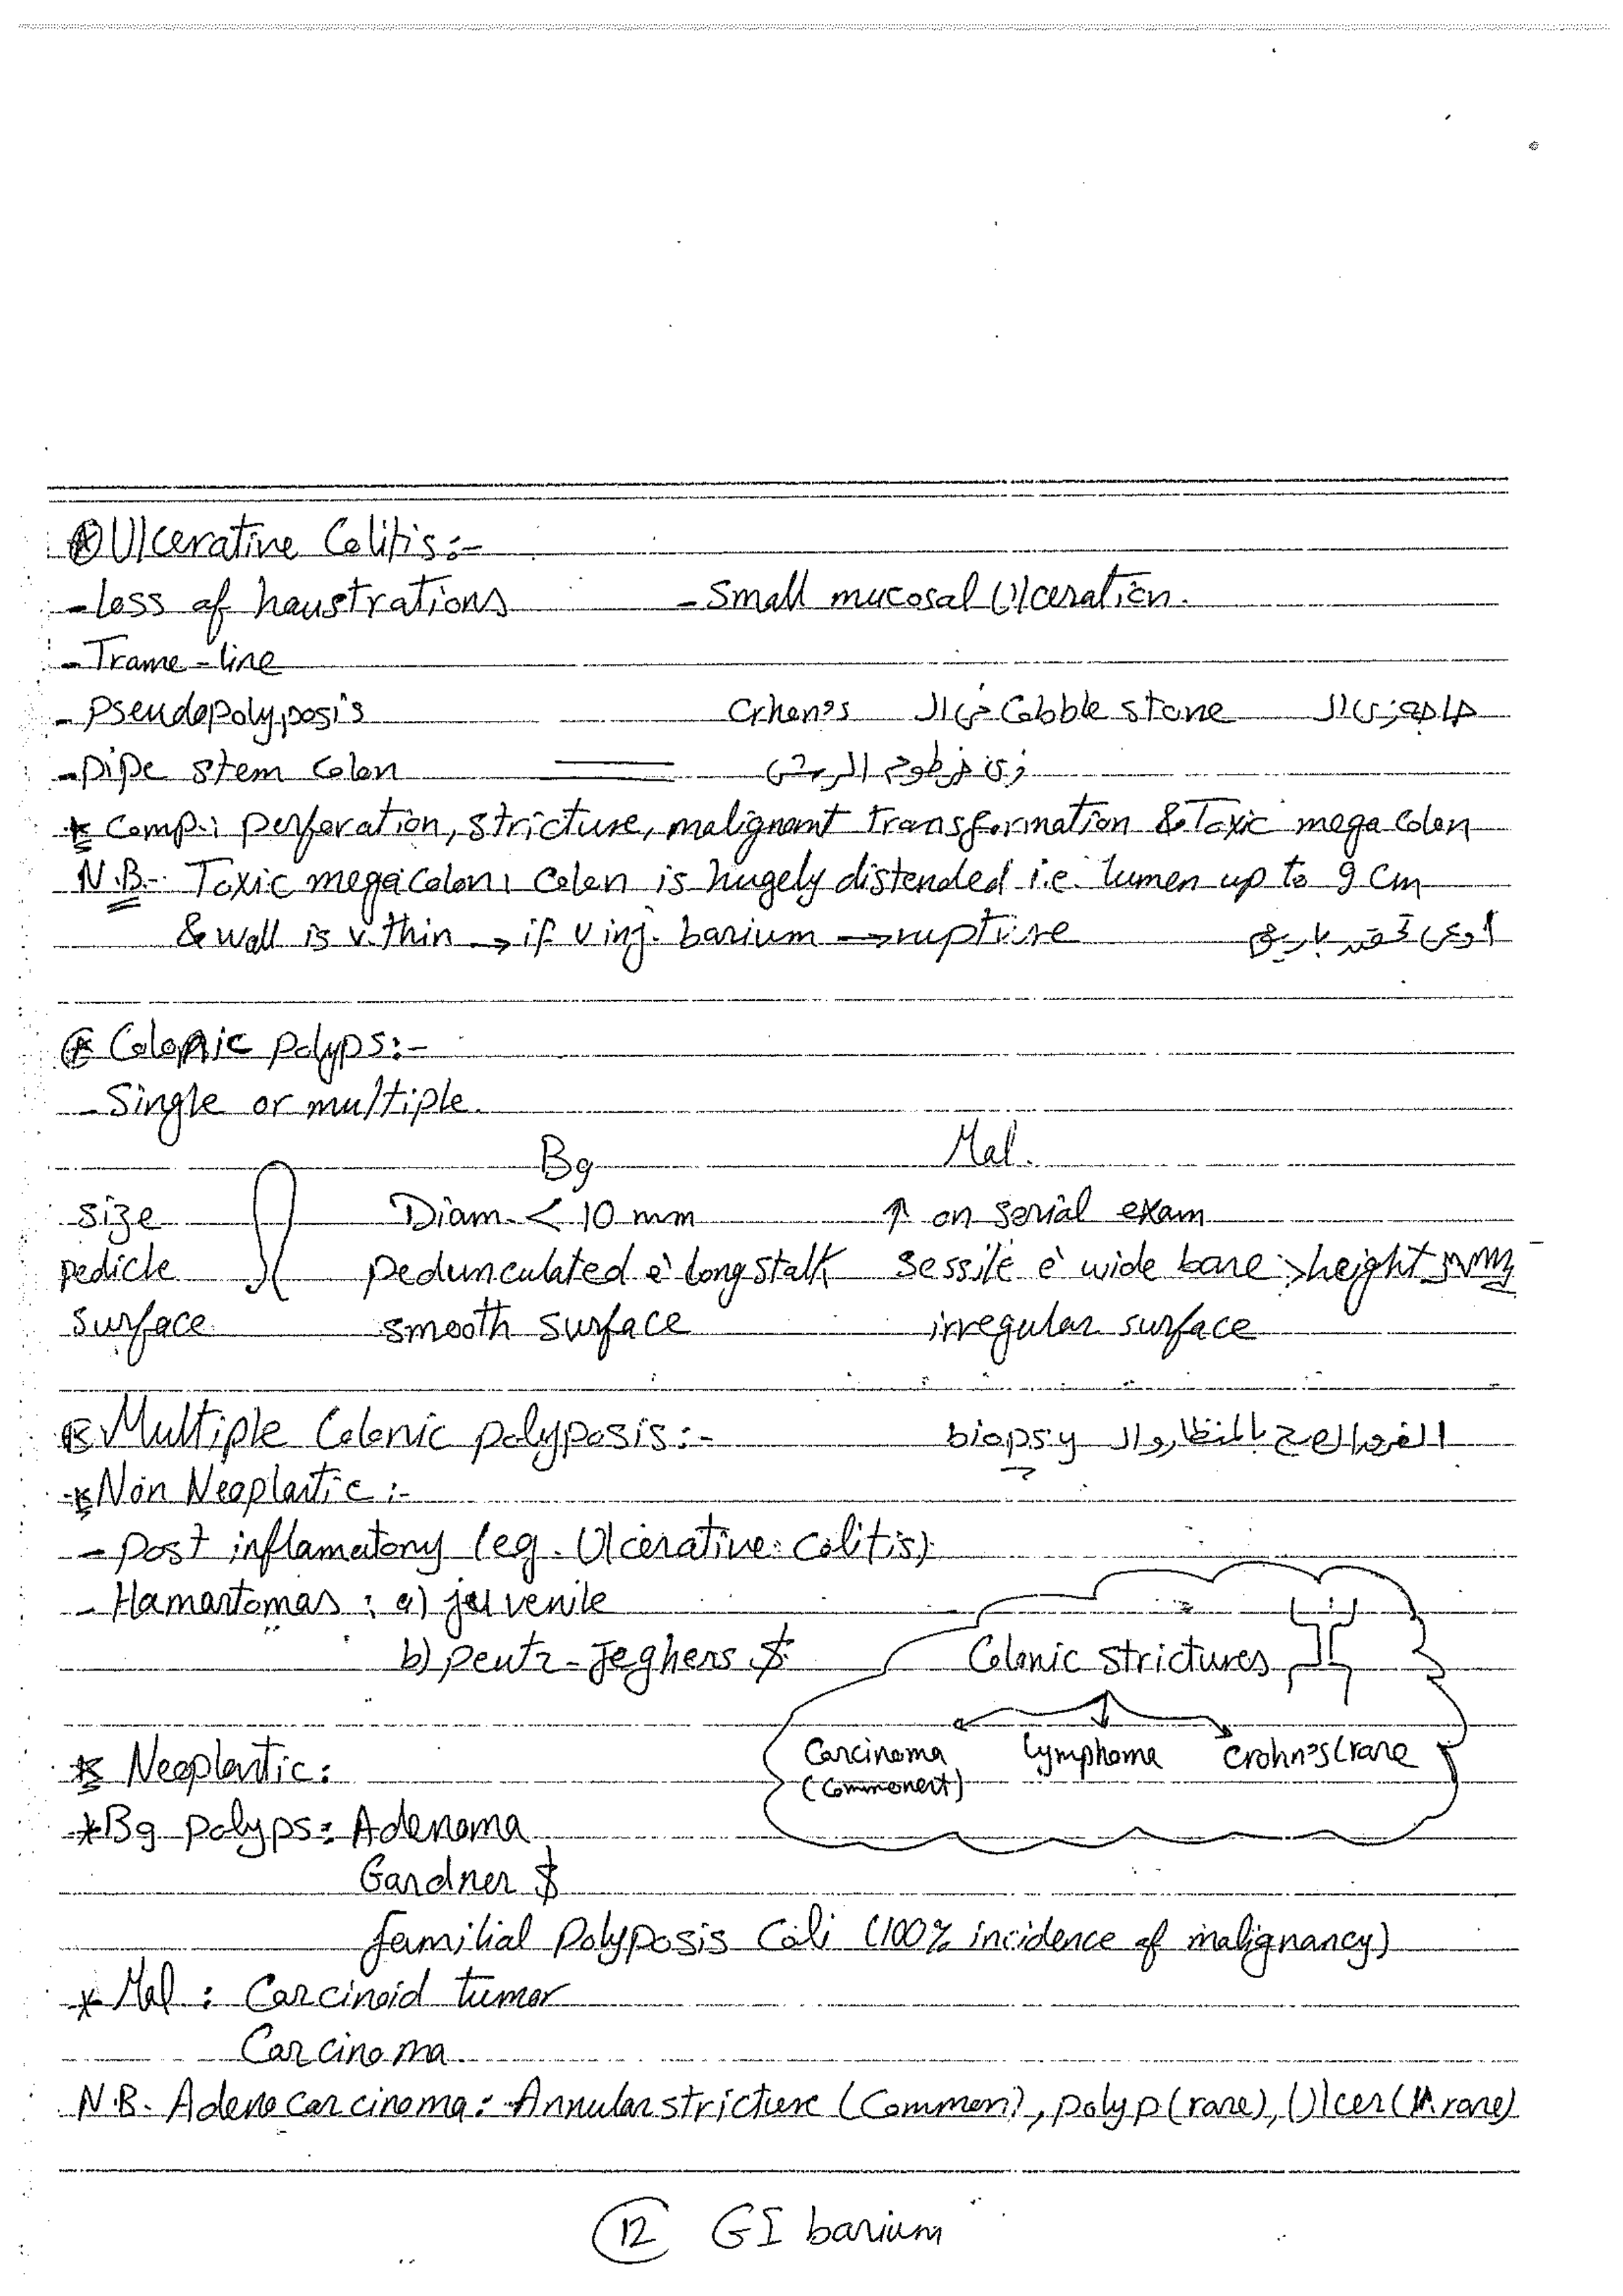 Ulcerative Colitis:-
- loss of haustrations - Small mucosal Ulceration.
- Trame-line
- Pseudopolyposis Crhon's فى ال Cobble stone زى ال
- pipe stem Colon زى خرطوم الرش
* Comp.: perforation, stricture, malignant transformation & Toxic mega Colon
N.B.- Toxic mega Colon: Colon is hugely distended i.e. lumen up to 9 Cm
& wall is v. thin → if U inj. barium → rupture اوعى تحقن باريوم
Colonic polyps:-
- Single or multiple.
Bg Mal.
size Diam. < 10 mm ↑ on serial exam
pedicle pedunculated è long stalk sessile è wide base > height
surface smooth surface irregular surface
Multiple Colonic polyposis:- biopsy بالمنظار وال
* Non Neoplastic:-
- post inflamatory (eg. Ulcerative colitis)
- Hamartomas: a) juvenile
b) peutz-Jeghers $
Colonic strictures
Carcinoma lymphoma Crohn's (rare
(Commonest)
* Neoplastic:
* Bg polyps: Adenoma
Gardner $
familial Polyposis Coli (100% incidence of malignancy)
* Mal: Carcinoid tumor
Carcinoma
N.B. Adenocarcinoma: Annular stricture (Common), polyp (rare), Ulcer (rare)
12 GI barium